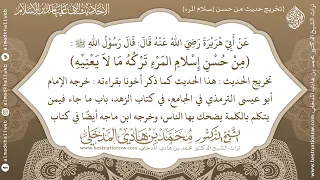 [تخريج حديث من حسن إسلام المرء]
الأحاديث التي عليها مدار الإسلام
عَنْ أَبِي هُرَيْرَةَ رَضِيَ اللهُ عَنْهُ قَالَ: قَالَ رَسُولُ اللهِ ﷺ:
(مِنْ حُسْنِ إِسْلَامِ المَرْءِ تَرْكُهُ مَا لَا يَعْنِيْهِ)
تخريج الحديث : هذا الحديث كما ذكر أخونا بقراءته : خرجه الإمام
أبو عيسى الترمذي في الجامع، في كتاب الزهد، باب ما جاء فيمن
يتكلم بالكلمة يضحك بها الناس، وخرجه ابن ماجه أيضًا في كتاب
محمد بن هادي المدخلي